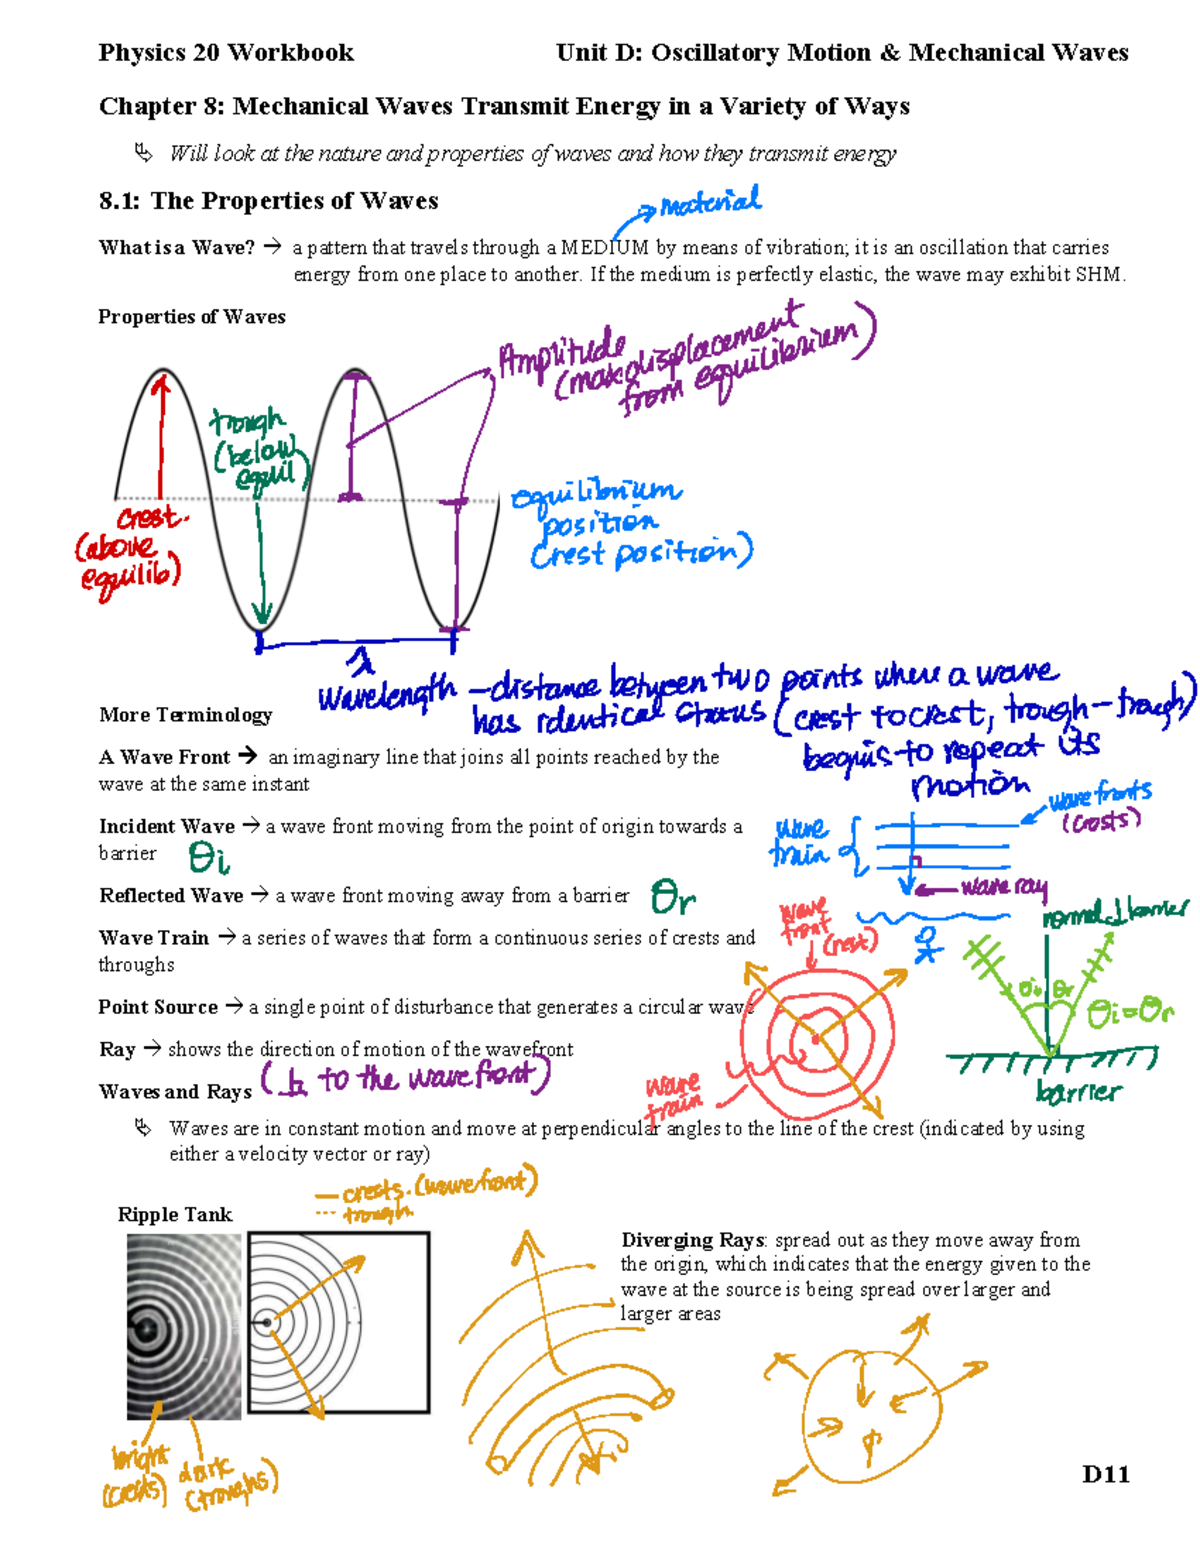 Physics 20 Workbook Unit D: Oscillatory Motion & Mechanical Waves
Chapter 8: Mechanical Waves Transmit Energy in a Variety of Ways
Will look at the nature and properties of waves and how they transmit energy
8.1: The Properties of Waves
material
What is a Wave? → a pattern that travels through a MEDIUM by means of vibration; it is an oscillation that carries
energy from one place to another. If the medium is perfectly elastic, the wave may exhibit SHM.
Properties of Waves
Amplitude
(max displacement
from equilibrium)
trough
(below
equil)
crest
(above
equilib)
equilibrium
position
(rest position)
λ
wavelength - distance between two points where a wave
has identical status (crest to crest, trough-trough)
begins to repeat its
motion
More Terminology
A Wave Front → an imaginary line that joins all points reached by the
wave at the same instant
wave fronts
(crests)
wave
train
wave ray
Incident Wave → a wave front moving from the point of origin towards a
barrier θi
Reflected Wave → a wave front moving away from a barrier θr
normal ⊥ barrier
wave
front
(rest)
Wave Train → a series of waves that form a continuous series of crests and
throughs
θi θr
θi = θr
barrier
Point Source → a single point of disturbance that generates a circular wave
Ray → shows the direction of motion of the wavefront
(⊥ to the wavefront)
wave
train
Waves and Rays
Waves are in constant motion and move at perpendicular angles to the line of the crest (indicated by using
either a velocity vector or ray)
— crests. (wavefront)
--- trough
Ripple Tank
Diverging Rays: spread out as they move away from
the origin, which indicates that the energy given to the
wave at the source is being spread over larger and
larger areas
bright
(crests)
dark
(troughs)
D11